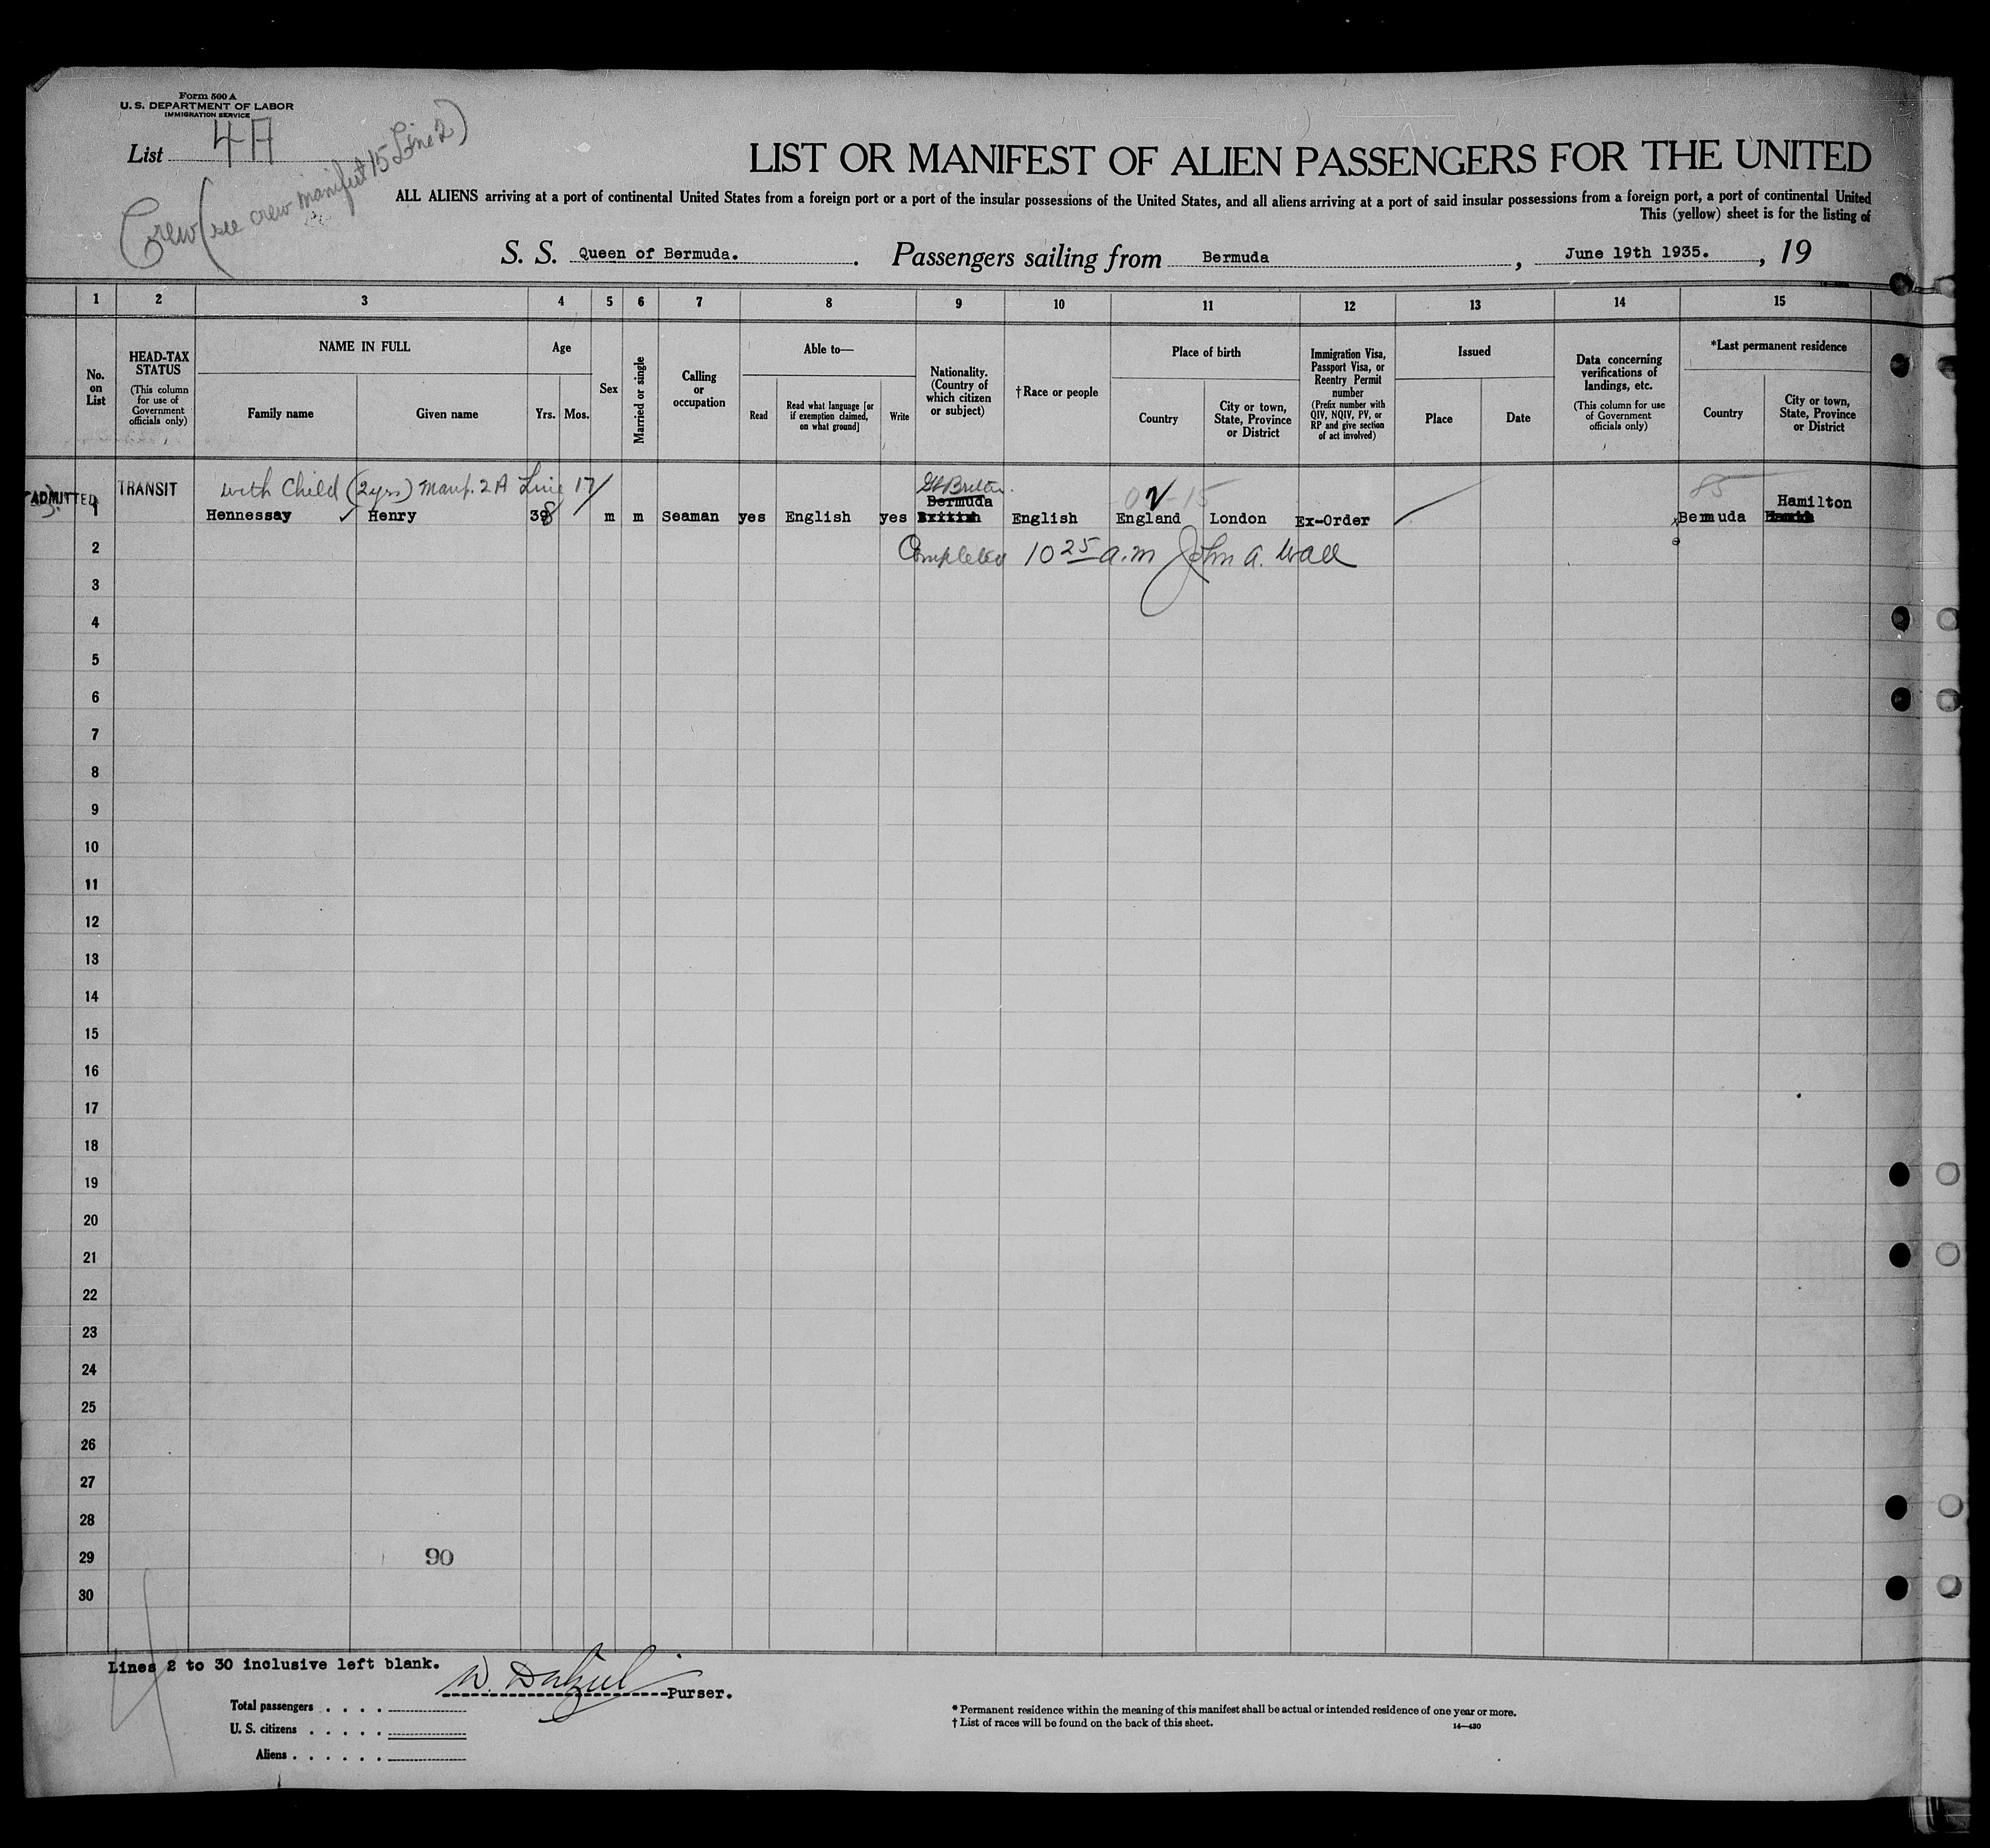 Form 500 A
U. S. DEPARTMENT OF LABOR
IMMIGRATION SERVICE
List 4A
Crew (see crew manifest 15 Line 2)
LIST OR MANIFEST OF ALIEN PASSENGERS FOR THE UNITED
ALL ALIENS arriving at a port of continental United States from a foreign port or a port of the insular possessions of the United States, and all aliens arriving at a port of said insular possessions from a foreign port, a port of continental United
This (yellow) sheet is for the listing of
S. S. Queen of Bermuda. . Passengers sailing from Bermuda , June 19th 1935. , 19
1 2 3 4 5 6 7 8 9 10 11 12 13 14 15
No. on List
HEAD-TAX STATUS
(This column for use of Government officials only)
NAME IN FULL
Family name
Given name
Age
Yrs.
Mos.
Sex
Married or single
Calling or occupation
Able to—
Read
Read what language [or if exemption claimed, on what ground]
Write
Nationality. (Country of which citizen or subject)
†Race or people
Place of birth
Country
City or town, State, Province or District
Immigration Visa, Passport Visa, or Reentry Permit number
(Prefix number with QIV, NQIV, PV, or RP and give section of act involved)
Issued
Place
Date
Data concerning verifications of landings, etc.
(This column for use of Government officials only)
*Last permanent residence
Country
City or town, State, Province or District
ADMITTED TRANSIT with Child (2yrs) Manf. 2A Line 17
Bermuda
Hamilton
1 Hennessay Henry 38 m m Seaman yes English yes English England London Ex-Order Bermuda
2 Completed 10 25 a.m John A. Wall
3
4
5
6
7
8
9
10
11
12
13
14
15
16
17
18
19
20
21
22
23
24
25
26
27
28
29 90
30
Lines 2 to 30 inclusive left blank.
W. Dalziel Purser.
Total passengers . . . .
U. S. citizens . . . . .
Aliens . . . . . .
* Permanent residence within the meaning of this manifest shall be actual or intended residence of one year or more.
† List of races will be found on the back of this sheet.
14—430